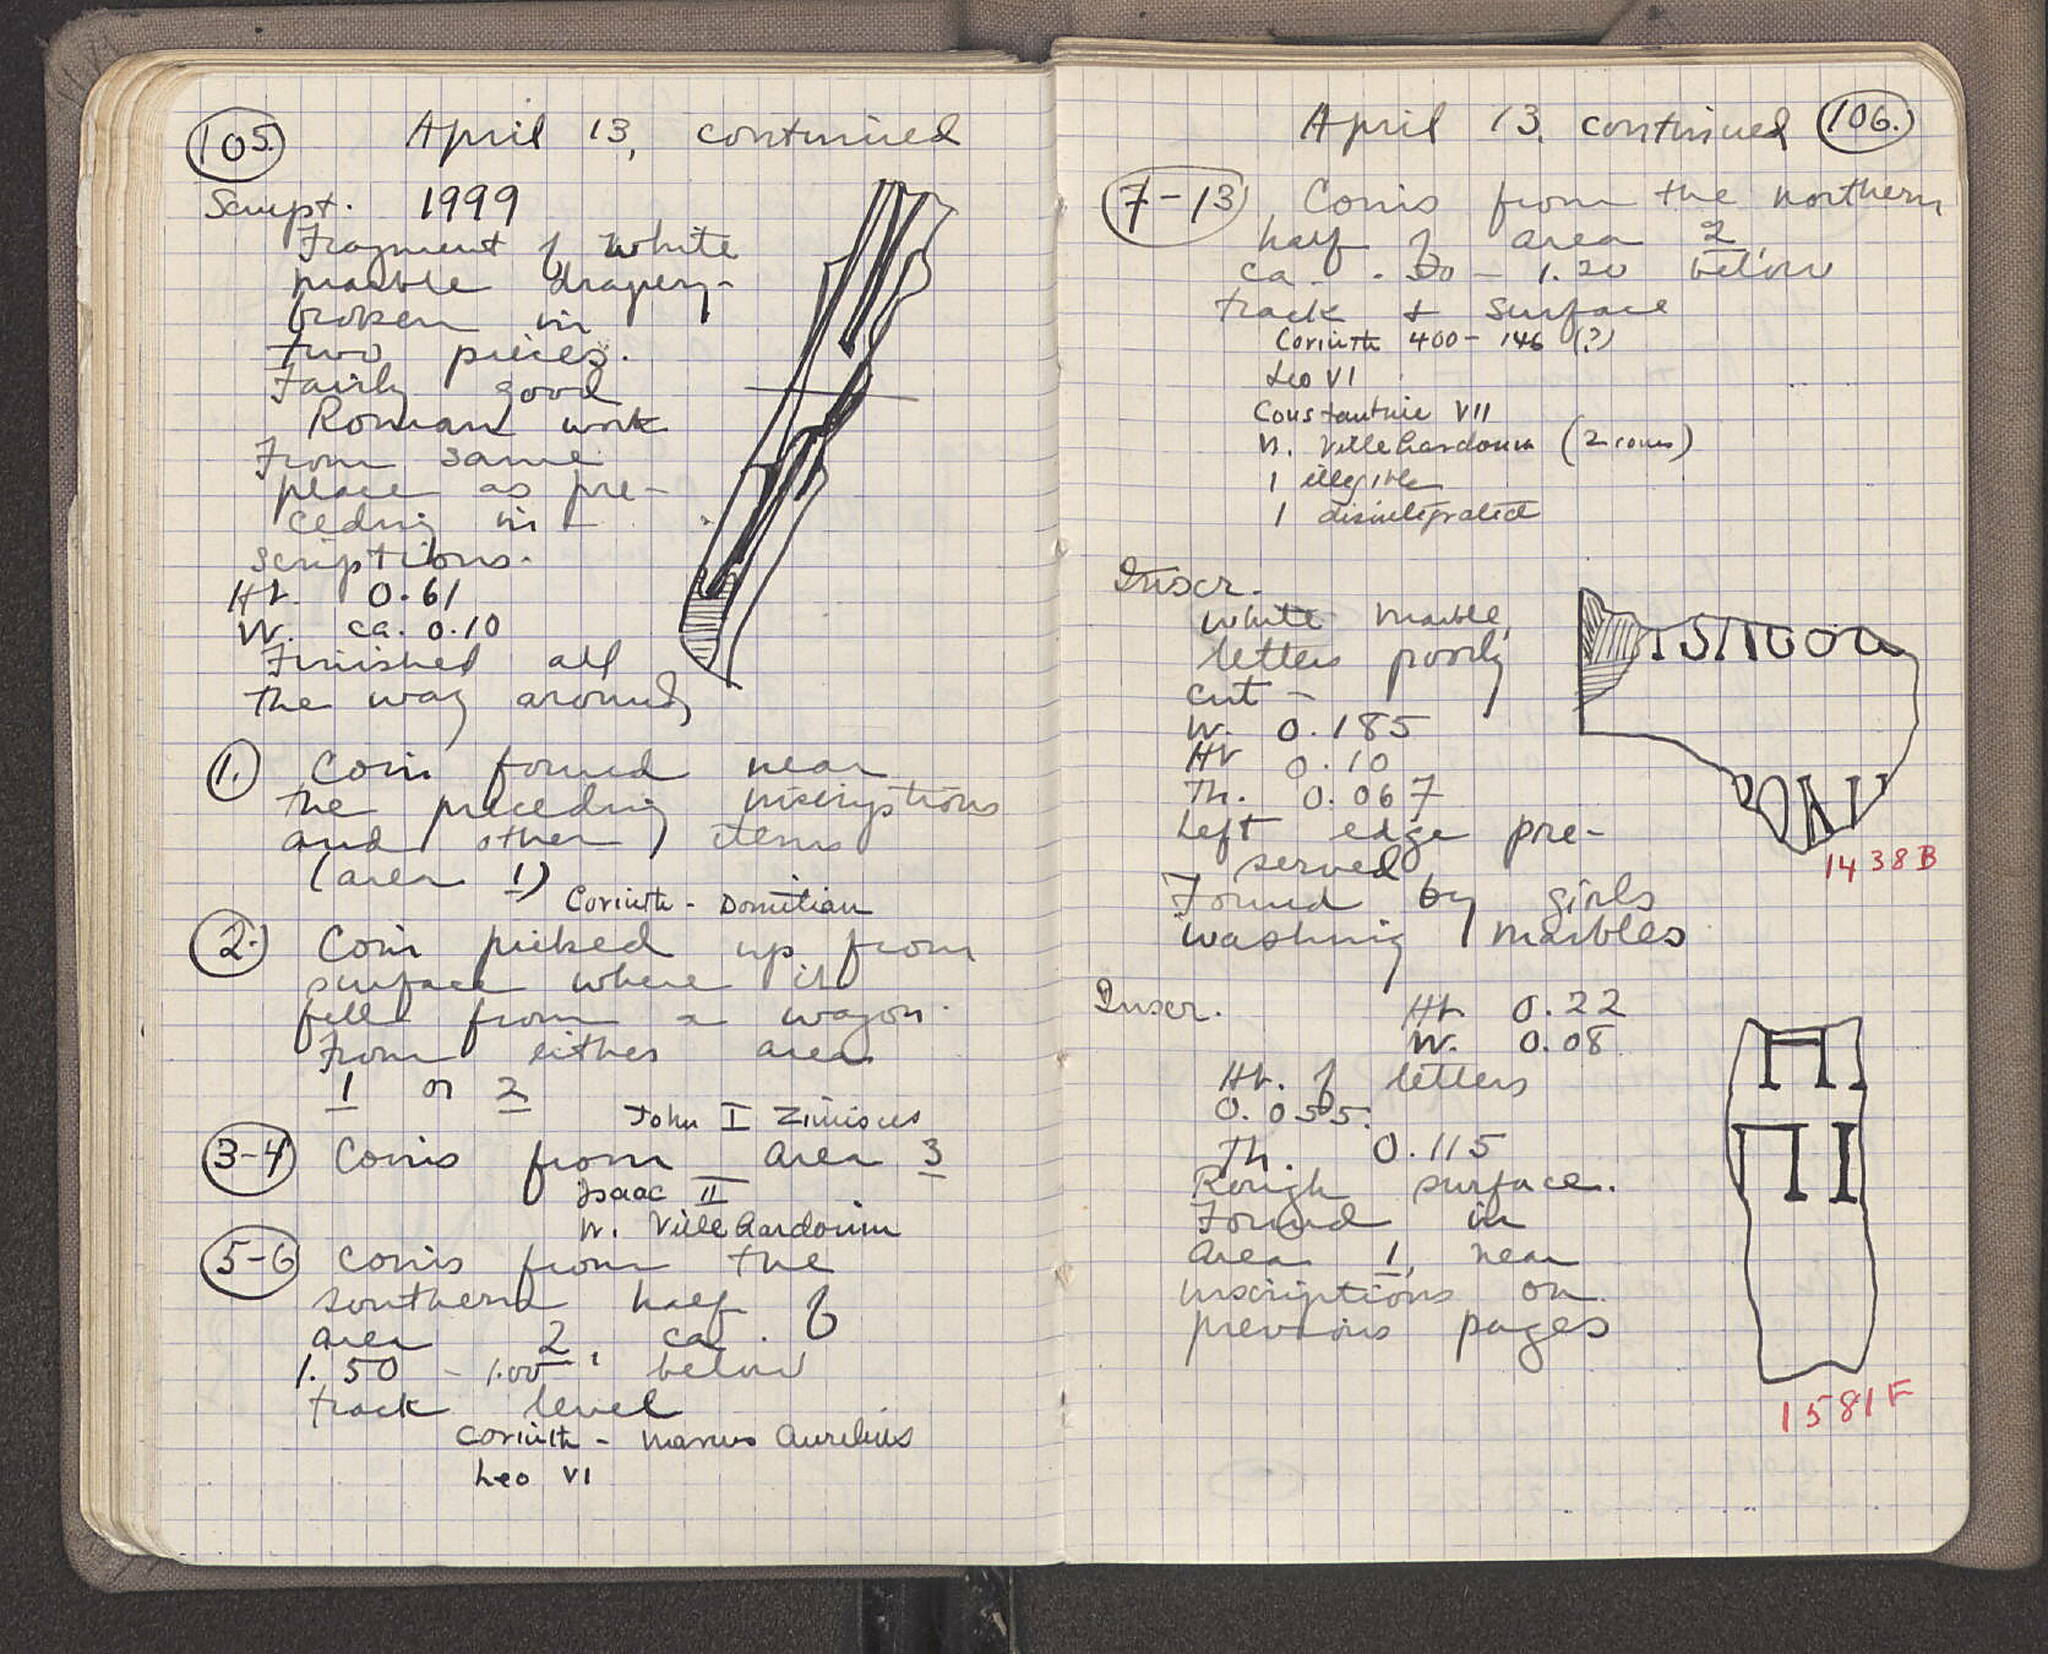 105. April 13, continued
Sculpt. 1999
Fragment of white
marble drapery-
broken in
two pieces.
Fairly good
Roman work
From same
place as pre-
ceding in-
scriptions.
Ht. 0.61
W. ca. 0.10
Finished all
the way around
1. Coin found near
the preceding inscriptions
and other items
(area 1)
Corinth - Domitian
2. Coin picked up from
surface where it
fell from a wagon.
From either area
1 or 2
John I Zimisces
3-4 Coins from area 3
Isaac II
W. Villehardouin
5-6 Coins from the
southern half of
area 2, ca.
1.50 - 1.00 below
track level
Corinth - Marcus Aurelius
Leo VI
April 13, continued 106.
7-13 Coins from the northern
half of area 2,
ca. - 1.20 below
track & surface
Corinth 400-146 (?)
Leo VI
Constantine VII
W. Villehardouin (2 coins)
1 illegible
1 disintegrated
Inscr.
white marble,
letters poorly
cut -
W. 0.185
Ht 0.10
Th. 0.067
Left edge pre-
served
Found by girls
washing marbles
1438B
Inscr. Ht. 0.22
W. 0.08
Ht. of letters
0.055.
Th. 0.115
Rough surface.
Found in
area 1, near
inscriptions on
previous pages
Π
ΠΙ
1581F